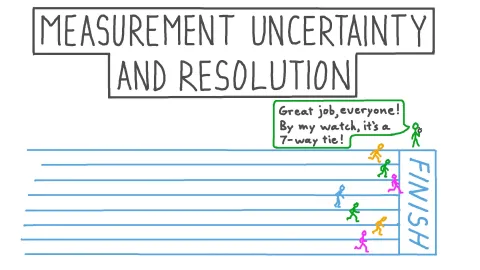 MEASUREMENT UNCERTAINTY
AND RESOLUTION
Great job, everyone!
By my watch, it's a
7-way tie!
FINISH